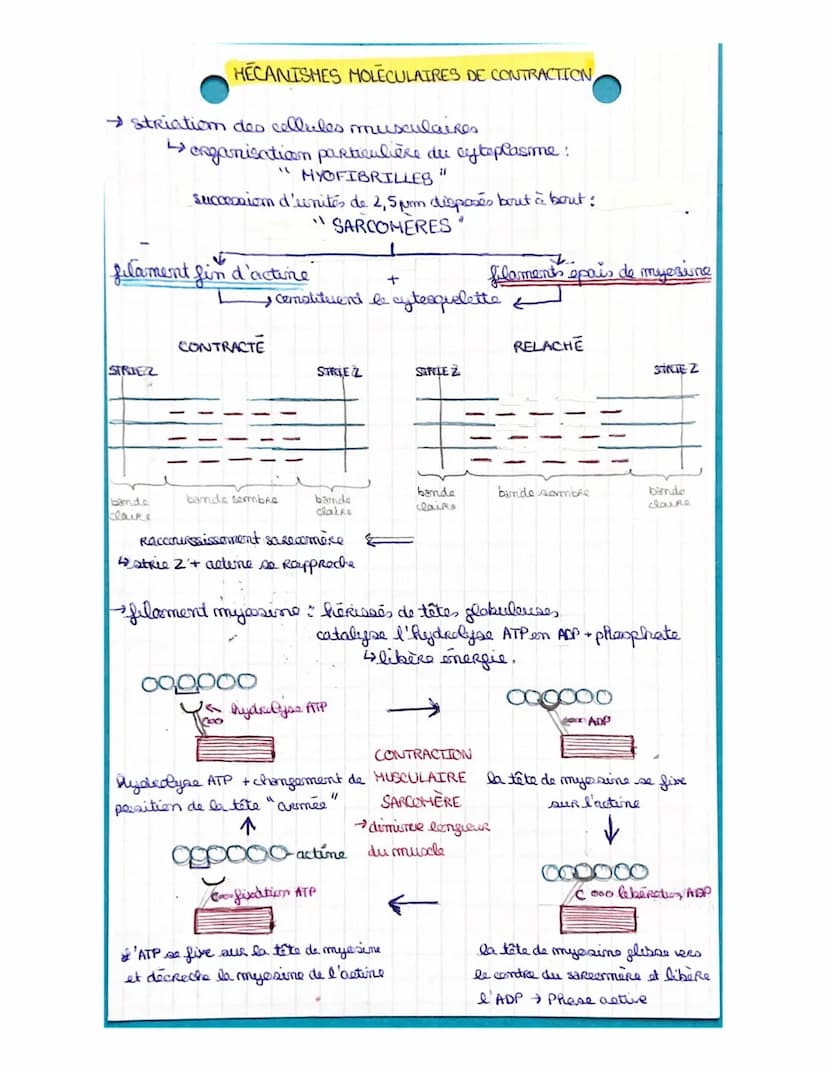 MÉCANISMES MOLÉCULAIRES DE CONTRACTION
→ striation des cellules musculaires
↳ organisation particulière du cytoplasme :
" MYOFIBRILLES "
succession d'unités de 2,5 µm disposés bout à bout :
" SARCOMÈRES "
filament fin d'actine + filaments épais de myosine
→ constituent le cytosquelette ←
CONTRACTÉ RELACHÉ
STRIE Z STRIE Z STRIE Z STRIE Z
bande claire bande sombre bande claire bande claire bande sombre bande claire
Raccourssissement sarcomère ⇐
↳ strie Z + actine se rapproche
→ filament myosine : hérissés de têtes globuleuses
catalyse l'hydrolyse ATP en ADP + phosphate
↳ libère énergie.
hydrolyse ATP
ADP
Hydrolyse ATP + changement de
position de la tête "armée"
CONTRACTION
MUSCULAIRE
SARCOMÈRE
→ diminue longueur
du muscle
la tête de myosine se fixe
sur l'actine
actine
fixation ATP
libération ADP
l'ATP se fixe sur la tête de myosine
et décroche la myosine de l'actine
la tête de myosine glisse vers
le centre du sarcomère et libère
l'ADP → Phase active